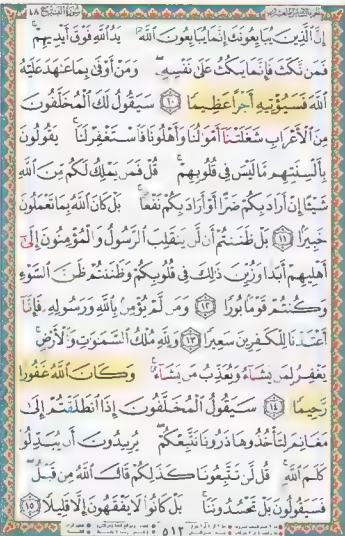 سُورَةُ الفَتْحِ ٤٨
إِنَّ ٱلَّذِينَ يُبَايِعُونَكَ إِنَّمَا يُبَايِعُونَ ٱللَّهَ يَدُ ٱللَّهِ فَوْقَ أَيْدِيهِمْ ۚ
فَمَن نَّكَثَ فَإِنَّمَا يَنكُثُ عَلَىٰ نَفْسِهِۦ ۖ وَمَنْ أَوْفَىٰ بِمَا عَٰهَدَ عَلَيْهُ
ٱللَّهَ فَسَيُؤْتِيهِ أَجْرًا عَظِيمًا ١٠ سَيَقُولُ لَكَ ٱلْمُخَلَّفُونَ
مِنَ ٱلْأَعْرَابِ شَغَلَتْنَآ أَمْوَٰلُنَا وَأَهْلُونَا فَٱسْتَغْفِرْ لَنَا ۚ يَقُولُونَ
بِأَلْسِنَتِهِم مَّا لَيْسَ فِى قُلُوبِهِمْ ۚ قُلْ فَمَن يَمْلِكُ لَكُم مِّنَ ٱللَّهِ
شَيْـًٔا إِنْ أَرَادَ بِكُمْ ضَرًّا أَوْ أَرَادَ بِكُمْ نَفْعًۢا ۚ بَلْ كَانَ ٱللَّهُ بِمَا تَعْمَلُونَ
خَبِيرًۢا ١١ بَلْ ظَنَنتُمْ أَن لَّن يَنقَلِبَ ٱلرَّسُولُ وَٱلْمُؤْمِنُونَ إِلَىٰٓ
أَهْلِيهِمْ أَبَدًا وَزُيِّنَ ذَٰلِكَ فِى قُلُوبِكُمْ وَظَنَنتُمْ ظَنَّ ٱلسَّوْءِ
وَكُنتُمْ قَوْمًۢا بُورًا ١٢ وَمَن لَّمْ يُؤْمِنۢ بِٱللَّهِ وَرَسُولِهِۦ فَإِنَّآ
أَعْتَدْنَا لِلْكَٰفِرِينَ سَعِيرًا ١٣ وَلِلَّهِ مُلْكُ ٱلسَّمَٰوَٰتِ وَٱلْأَرْضِ ۚ
يَغْفِرُ لِمَن يَشَآءُ وَيُعَذِّبُ مَن يَشَآءُ ۚ وَكَانَ ٱللَّهُ غَفُورًا
رَّحِيمًا ١٤ سَيَقُولُ ٱلْمُخَلَّفُونَ إِذَا ٱنطَلَقْتُمْ إِلَىٰ
مَغَانِمَ لِتَأْخُذُوهَا ذَرُونَا نَتَّبِعْكُمْ ۖ يُرِيدُونَ أَن يُبَدِّلُوا۟
كَلَٰمَ ٱللَّهِ ۚ قُل لَّن تَتَّبِعُونَا كَذَٰلِكُمْ قَالَ ٱللَّهُ مِن قَبْلُ ۖ
فَسَيَقُولُونَ بَلْ تَحْسُدُونَنَا ۚ بَلْ كَانُوا۟ لَا يَفْقَهُونَ إِلَّا قَلِيلًا ١٥
٥١٢